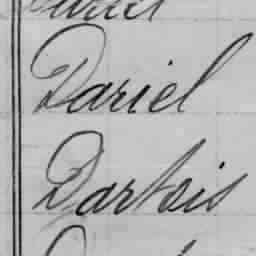 Dariel
Dartois